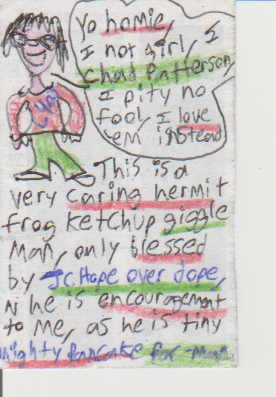 Yo homie,
I not girl, I
Chad Patterson,
I pity no
fool I love
'em instead
This is a
very caring hermit
frog ketchup giggle
Man, only blessed
by JC Hope over dope,
N he is encouragement
to me, as he is tiny
mighty pancake for-man